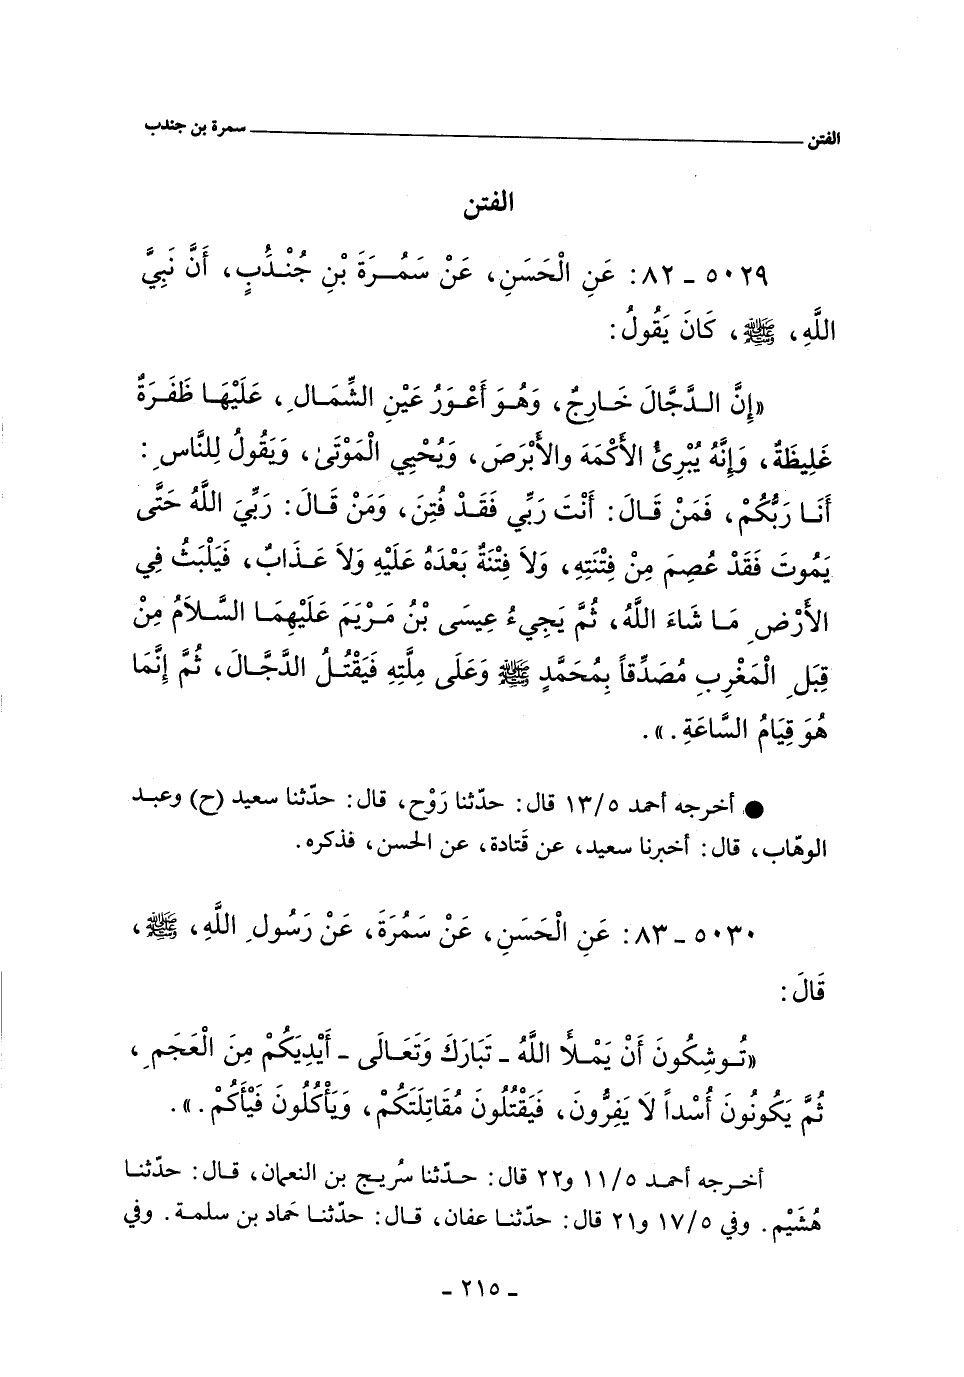 الفتن ــــــــ سمرة بن جندب
الفتن
٥٠٢٩ ـ ٨٢: عَنِ الْحَسَنِ، عَنْ سَمُرَةَ بْنِ جُنْدُبٍ، أَنَّ نَبِيَّ
اللَّهِ، ﷺ، كَانَ يَقُولُ:
«إِنَّ الدَّجَّالَ خَارِجٌ، وَهُوَ أَعْوَرُ عَيْنِ الشِّمَالِ، عَلَيْهَا ظَفَرَةٌ
غَلِيظَةٌ، وَإِنَّهُ يُبْرِئُ الأَكْمَهَ والأَبْرَصَ، وَيُحْيِي الْمَوْتَىٰ، وَيَقُولُ لِلنَّاسِ:
أَنَا رَبُّكُمْ، فَمَنْ قَالَ: أَنْتَ رَبِّي فَقَدْ فُتِنَ، وَمَنْ قَالَ: رَبِّيَ اللَّهُ حَتَّى
يَمُوتَ فَقَدْ عُصِمَ مِنْ فِتْنَتِهِ، وَلاَ فِتْنَةُ بَعْدَهُ عَلَيْهِ وَلاَ عَذَابٌ، فَيَلْبَثُ فِي
الأَرْضِ مَا شَاءَ اللَّهُ، ثُمَّ يَجِيءُ عِيسَى بْنُ مَرْيَمَ عَلَيْهِمَا السَّلاَمُ مِنْ
قِبَلِ الْمَغْرِبِ مُصَدِّقاً بِمُحَمَّدٍ ﷺ وَعَلَى مِلَّتِهِ فَيَقْتُلُ الدَّجَّالَ، ثُمَّ إِنَّمَا
هُوَ قِيَامُ السَّاعَةِ.».
● أخرجه أحمد ١٣/٥ قال: حدّثنا رَوْح، قال: حدّثنا سعيد (ح) وعبد
الوهّاب، قال: أخبرنا سعيد، عن قَتادة، عن الحسن، فذكره.
٥٠٣٠ ـ ٨٣: عَنِ الْحَسَنِ، عَنْ سَمُرَةَ، عَنْ رَسُولِ اللَّهِ، ﷺ،
قَالَ:
«تُوشِكُونَ أَنْ يَمْلَأَ اللَّهُ ـ تَبَارَكَ وَتَعَالَى ـ أَيْدِيَكُمْ مِنَ الْعَجَمِ،
ثُمَّ يَكُونُونَ أُسْداً لاَ يَفِرُّونَ، فَيَقْتُلُونَ مُقَاتِلَتَكُمْ، وَيَأْكُلُونَ فَيْأَكُمْ.».
أخرجه أحمد ١١/٥ و٢٢ قال: حدّثنا سُريج بن النعمان، قال: حدّثنا
هُشَيْم. وفي ١٧/٥ و٢١ قال: حدّثنا عفان، قال: حدّثنا حَماد بن سلمة. وفي
ـ ٢١٥ ـ